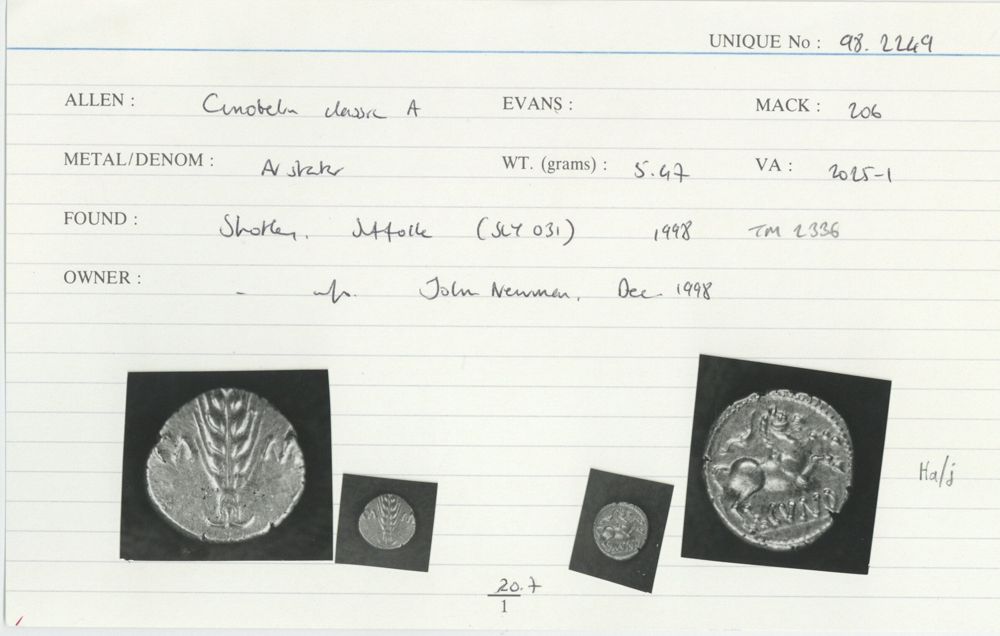 UNIQUE No : 98.2249
ALLEN : Cunobelin classic A EVANS : MACK : 206
METAL/DENOM : AV stater WT. (grams) : 5.47 VA : 2025-1
FOUND : Shotley, Suffolk (SLY 031) 1998 TM 2336
OWNER : - John Newman, Dec 1998
Ha/j
20.7
1